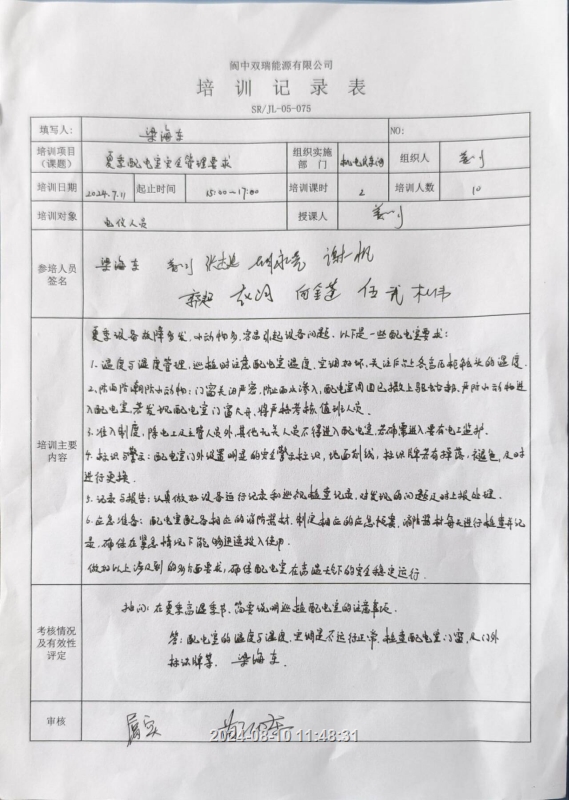 阆中双瑞能源有限公司
培训记录表
SR/JL-05-075
填写人: 梁海东 NO:
培训项目（课题） 夏季配电室安全管理要求 组织实施部门 机电队 组织人 姜
培训日期 2024.7.11 起止时间 15:00～17:00 培训课时 2 培训人数 10
培训对象 电仪人员 授课人 姜
参培人员签名 梁海东 姜 谢帆
向金莲 伍
培训主要内容
夏季设备故障多发，小动物多，容易引起设备问题，以下是一些配电室要求：
1、温度与湿度管理，巡检时注意配电室温度，空调好坏，关注各高压柜柜头的温度
2、防雨防潮防小动物：门窗关闭严密，防止雨水渗入，配电室周围已撒上驱虫，严防小动物进
入配电室，若发现配电室门窗，将严格考核值班人员。
3、准入制度，除电工及主管人员外，其他无关人员不得进入配电室，若确需进入要有电工监护
4、标识与警示：配电室门外设置明显的安全警示标识，地面划线，标识牌若有掉落，褪色，及时
进行更换。
5、记录与报告：认真做好设备运行记录和巡视检查记录，对发现的问题及时上报处理。
6、应急准备：配电室配备相应的消防器材，制定相应的应急预案，消防器材每天进行检查并记
录，确保在紧急情况下能够迅速投入使用。
做好以上涉及到的各方面要求，确保配电室在高温天气下的安全稳定运行。
考核情况及有效性评定
抽问：在夏季高温季节，简要说明巡检配电室的注意事项。
答：配电室的温度与湿度，空调是否运行正常，检查配电室门窗，及门外
标识牌等。 梁海东。
审核 属实
2024-08-10 11:48:31